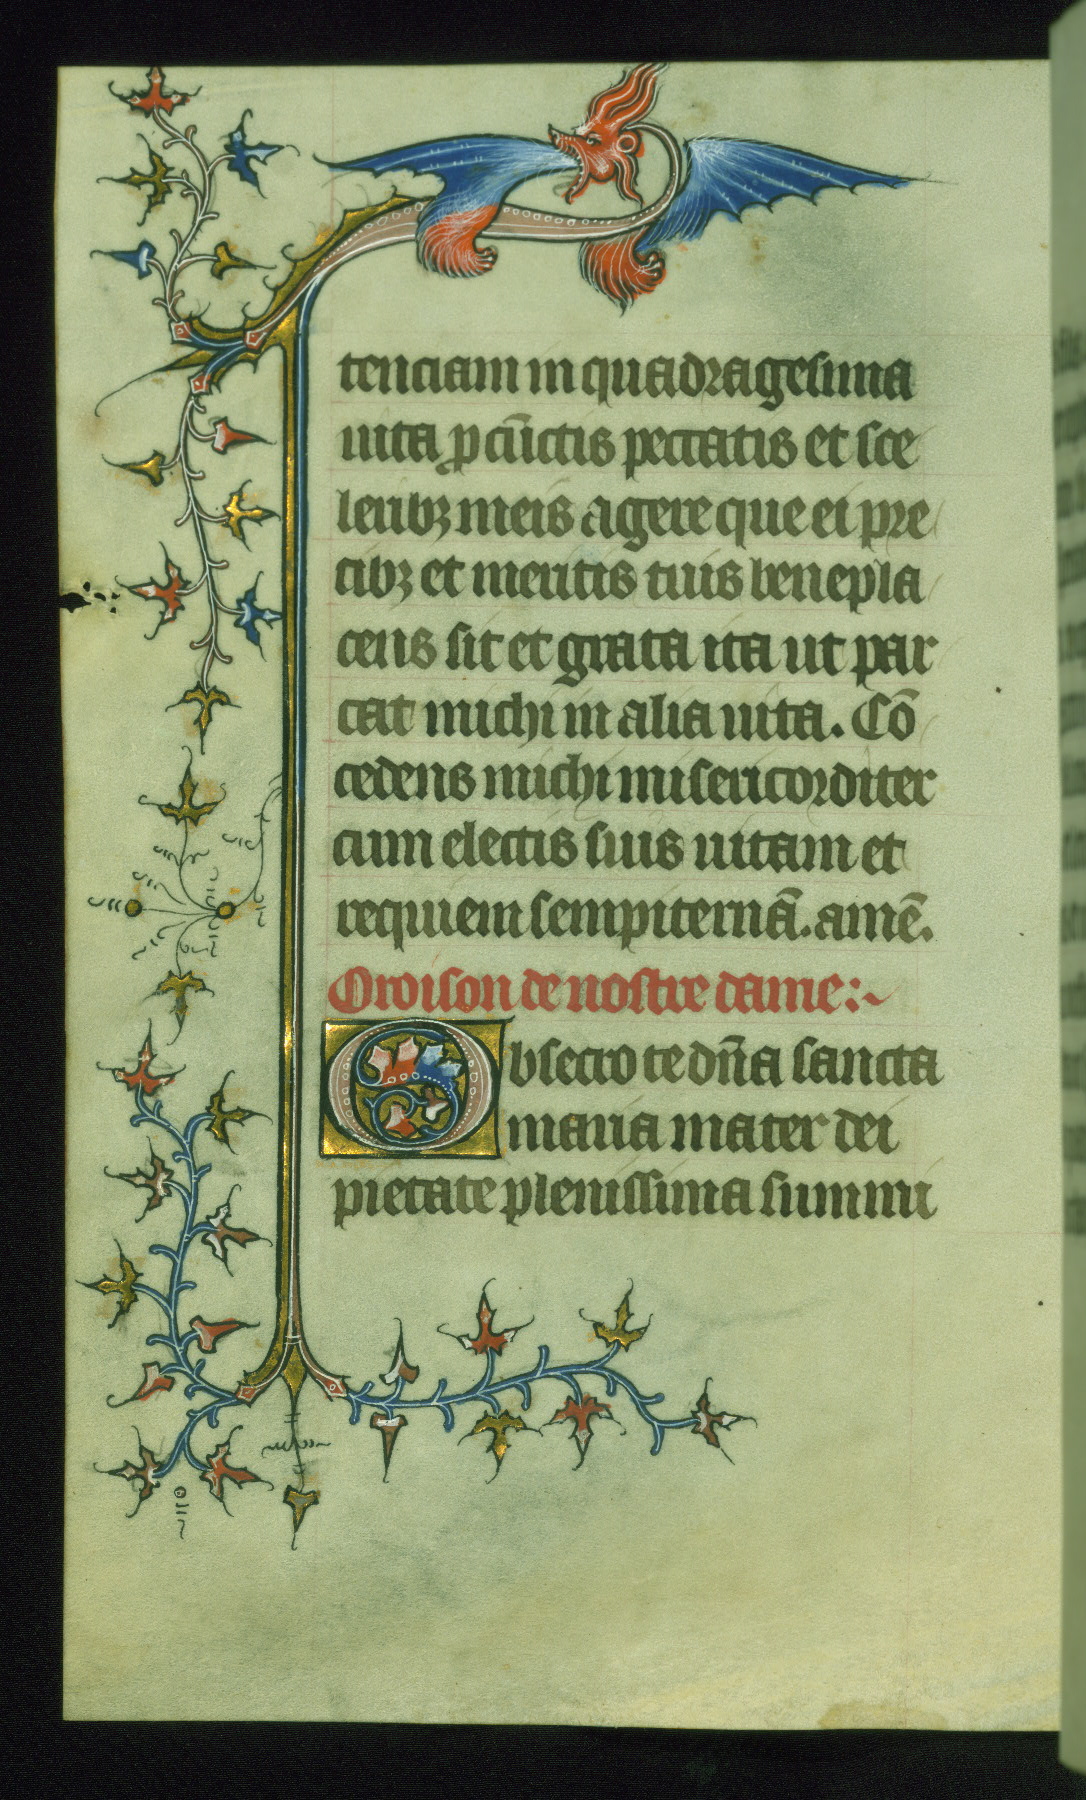 tenciam in quadragesima
uita p cūctis peccatis et sce
leribꝫ meis agere que ei pre
cibꝫ et meritis tuis benepla
cens sit et grata ita ut par
cat michi in alia uita. Cō
cedens michi misericorditer
cum electis suis uitam et
requiem sempiternā. amē.
Oroison de nostre dame:~
Obsecro te dn̄a sancta
maria mater dei
pietate plenissima summi